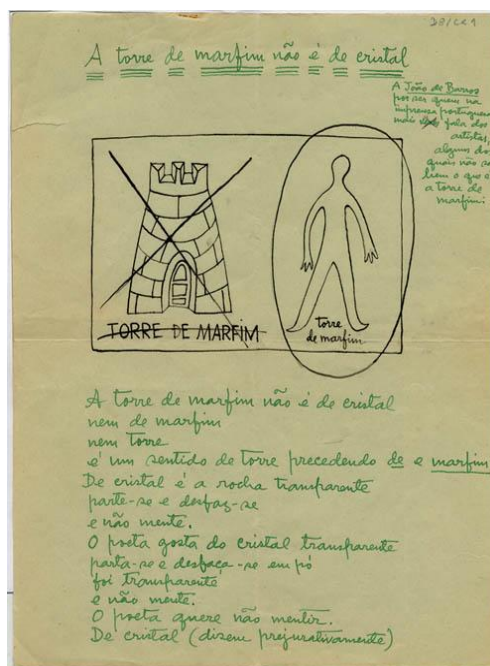 28/CC1
A torre de marfim não é de cristal
A João de Barros
por ser quem na
imprensa portuguesa
mais fala dos
artistas,
alguns dos
quais não sa-
biem o que é
a torre de
marfim:
TORRE DE MARFIM
torre
de marfim
A torre de marfim não é de cristal
nem de marfim
nem Torre
é um sentido de torre precedendo de e marfim
De cristal é a rocha transparente
parte-se e desfaz-se
e não mente.
O poeta gosta do cristal transparente
parta-se e desfaça-se em pó
foi transparente
e não mente.
O poeta quere não mentir.
De cristal (dizem prejurativamente)